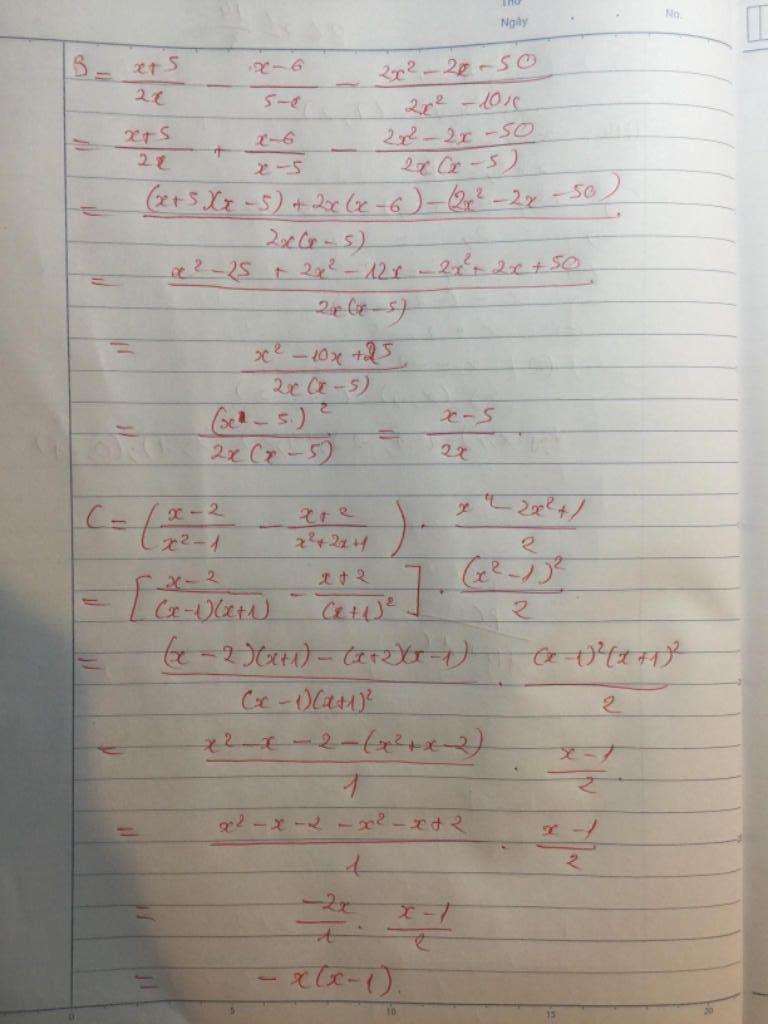 Thứ
Ngày . . No.
B = \frac{x+5}{2x} - \frac{x-6}{5-x} - \frac{2x^2-2x-50}{2x^2-10x}
= \frac{x+5}{2x} + \frac{x-6}{x-5} - \frac{2x^2-2x-50}{2x(x-5)}
= \frac{(x+5)(x-5)+2x(x-6)-(2x^2-2x-50)}{2x(x-5)}
= \frac{x^2-25+2x^2-12x-2x^2+2x+50}{2x(x-5)}
= \frac{x^2-10x+25}{2x(x-5)}
= \frac{(x-5)^2}{2x(x-5)} = \frac{x-5}{2x}.
C = \left(\frac{x-2}{x^2-1} - \frac{x+2}{x^2+2x+1}\right) . \frac{x^4-2x^2+1}{2}
= \left[\frac{x-2}{(x-1)(x+1)} - \frac{x+2}{(x+1)^2}\right] . \frac{(x^2-1)^2}{2}
= \frac{(x-2)(x+1)-(x+2)(x-1)}{(x-1)(x+1)^2} . \frac{(x-1)^2(x+1)^2}{2}
= \frac{x^2-x-2-(x^2+x-2)}{1} . \frac{x-1}{2}.
= \frac{x^2-x-2-x^2-x+2}{1} . \frac{x-1}{2}
= \frac{-2x}{1} . \frac{x-1}{2}
= -x(x-1).
0 5 10 15 20